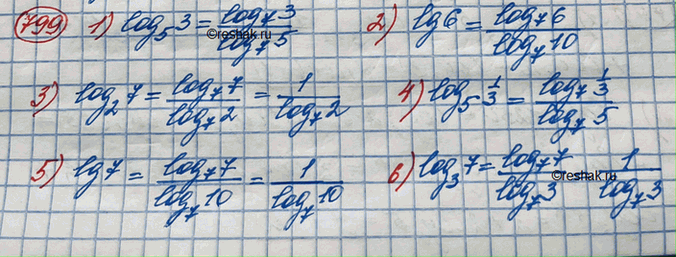 799 1) log₅3 = log₇3 / log₇5 2) lg6 = log₇6 / log₇10
©reshak.ru
3) log₂7 = log₇7 / log₇2 = 1 / log₇2 4) log₅ 1/3 = log₇ 1/3 / log₇5
5) lg7 = log₇7 / log₇10 = 1 / log₇10 6) log₃7 = log₇7 / log₇3 1 / log₇3
©reshak.ru